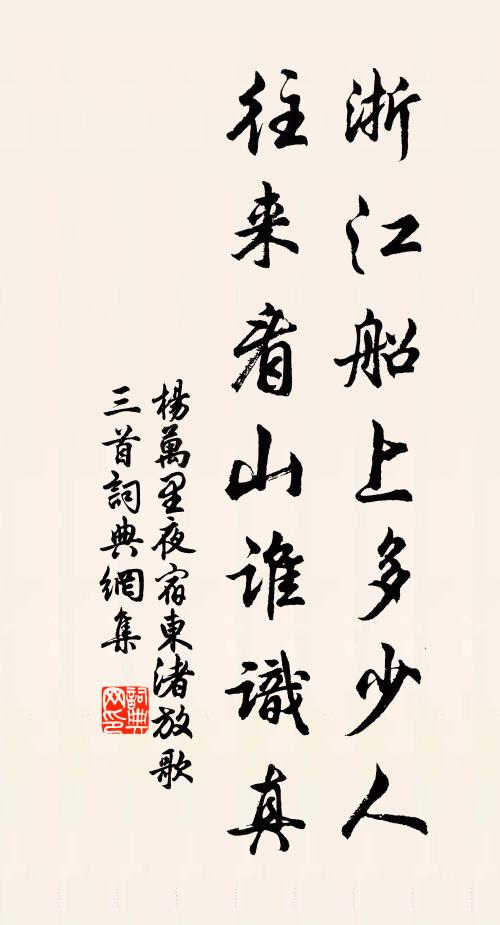 浙江船上多少人
往来看山誰識真
楊萬里夜宿東渚放歌
三首詞典網集
詞典
网印